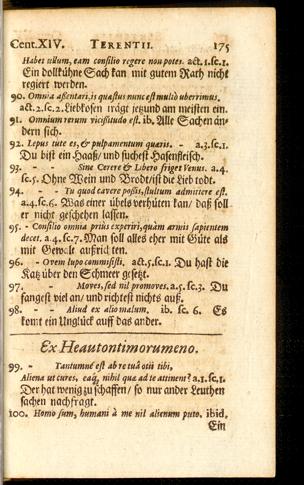 Cent.XIV. TERENTII. 175
Habet ullum, eam consilio regere non potes. act.1.sc.1.
Ein dollkühne Sach kan mit gutem Rath nicht
regiert werden.
90. Omnia assentari, is quæstus nunc est multò uberrimus.
act.2.sc.2. Liebkosen trägt jezund am meisten ein.
91. Omnium rerum vicissitudo est. ib. Alle Sachen än-
dern sich.
92. Lepus tute es, & pulpamentum quæris. - a.3.sc.1.
Du bist ein Haaß/ und suchest Hasenfleisch.
93. - - Sine Cerere & Libero friget Venus. a.4.
sc.5. Ohne Wein und Brodt/ist die Lieb todt.
94. - - Tu quod cavere possis, stultum admittere est.
a.4.sc.6. Was einer übels verhüten kan/ daß soll
er nicht geschehen lassen.
95. - Consilio omnia priùs experiri, quàm armis sapientem
decet. a.4.sc.7. Man soll alles eher mit Güte als
mit Gewalt außrichten.
96. - - Ovem lupo commisisti. act.5.sc.1. Du hast die
Katz über den Schmeer gesetzt.
97. - Moves, sed nil promoves. a.5.sc.3. Du
fangest viel an/ und richtest nichts auß.
98. - - Aliud ex alio malum. ib. sc. 6. Es
komt ein Unglück auff das ander.
Ex Heautontimorumeno.
99. - Tantumne est ab re tuâ otii tibi,
Aliena ut cures, eaq́, nihil quæ ad te attinent? a.1.sc.1.
Der hat wenig zu schaffen/ so nur ander Leuthen
sachen nachfragt.
100. Homo sum, humani à me nil alienum puto. ibid.
Ein